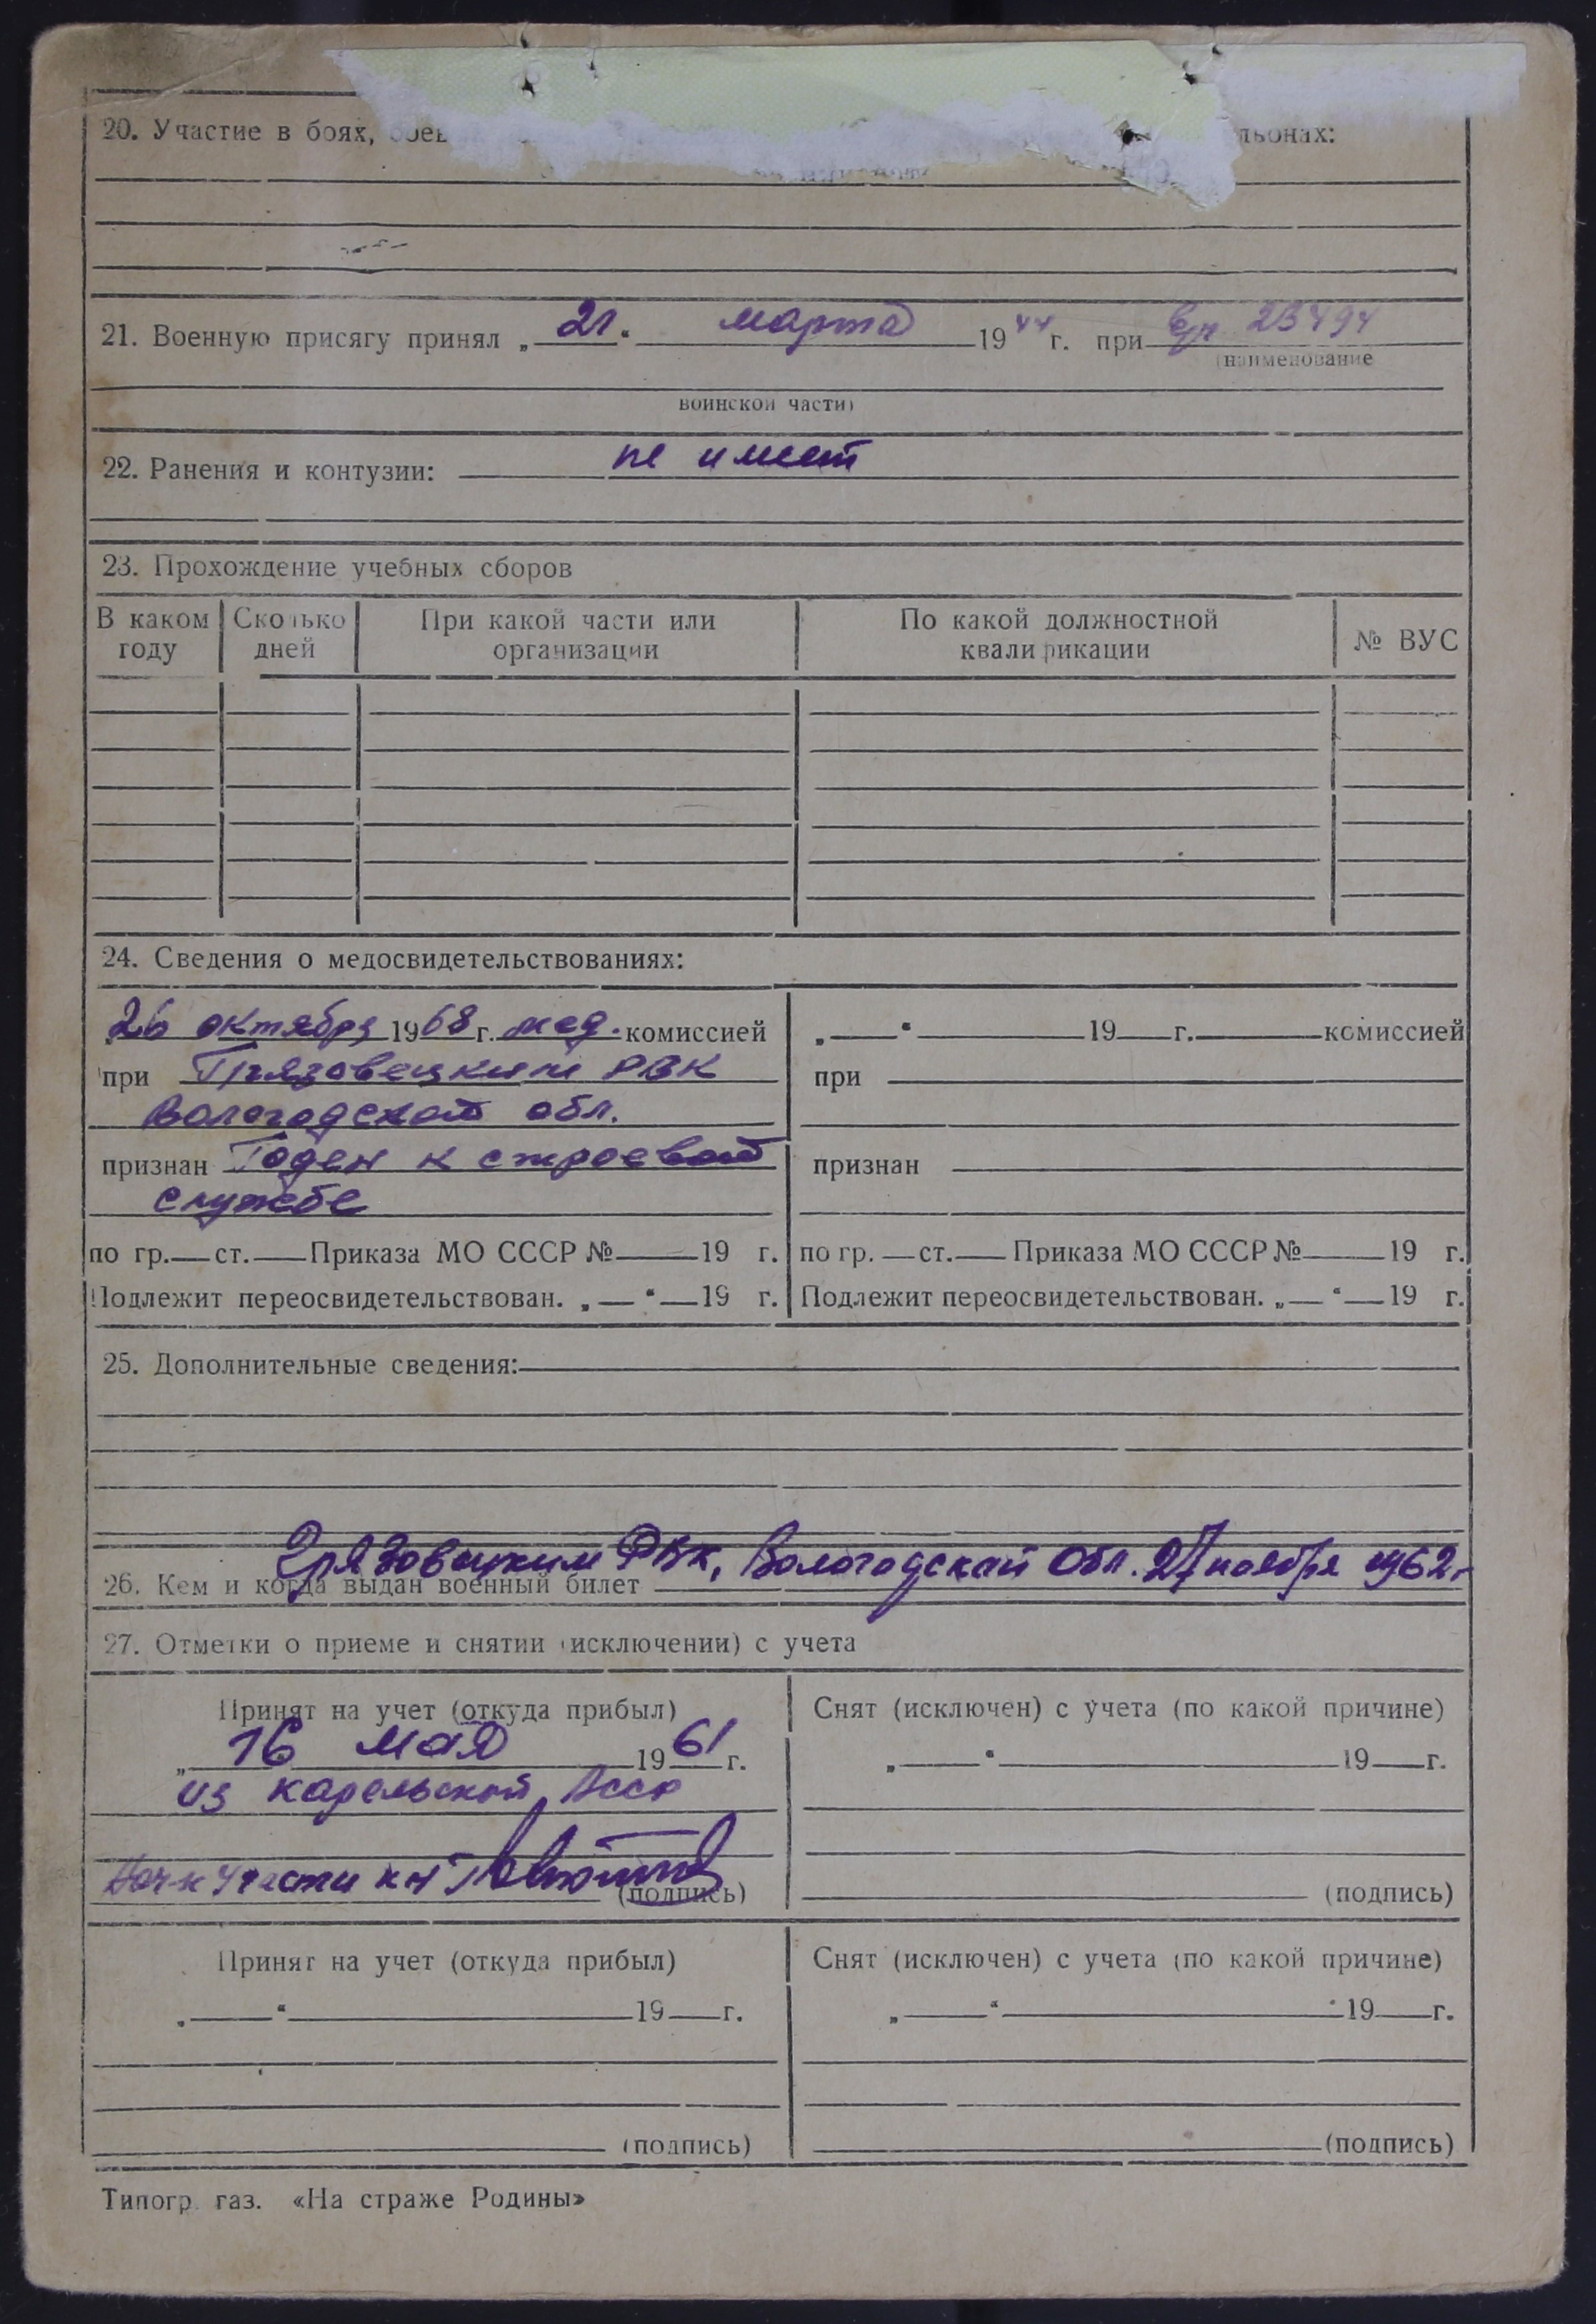 20. Участие в боях, боев льонах:
21. Военную присягу принял „21“ марта 1944 г. при в/ч 23494
(наименование
воинской части)
22. Ранения и контузии: не имеет
23. Прохождение учебных сборов
В каком году Сколько дней При какой части или организации По какой должностной квалификации № ВУС
24. Сведения о медосвидетельствованиях:
26 октября 1968 г. мед. комиссией „ “ 19 г. комиссией
при Грязовецким РВК при
Вологодской обл.
признан Годен к строевой признан
службе
по гр. ст. Приказа МО СССР № 19 г. по гр. ст. Приказа МО СССР № 19 г.
Подлежит переосвидетельствован. „ “ 19 г. Подлежит переосвидетельствован. „ “ 19 г.
25. Дополнительные сведения:
26. Кем и когда выдан военный билет Грязовецким РВК, Вологодской обл. 27 ноября 1962г.
27. Отметки о приеме и снятии (исключении) с учета
Принят на учет (откуда прибыл) Снят (исключен) с учета (по какой причине)
„16 мая 1961 г. „ “ 19 г.
из Карельской Асср
Нач-к части к-н (подпись) (подпись)
Принят на учет (откуда прибыл) Снят (исключен) с учета (по какой причине)
„ “ 19 г. „ “ 19 г.
(подпись) (подпись)
Типогр. газ. «На страже Родины»